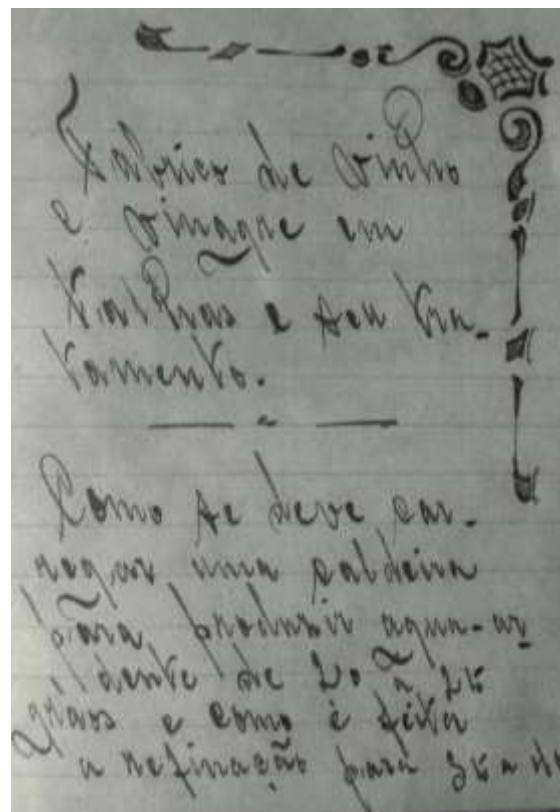 Fabrico de vinho
e vinagre em
talhas e seu tra-
tamento.
Como se deve car-
regar uma caldeira
para produzir agua-ar
dente de 20 a 25
gráos e como é feita
a refinação para